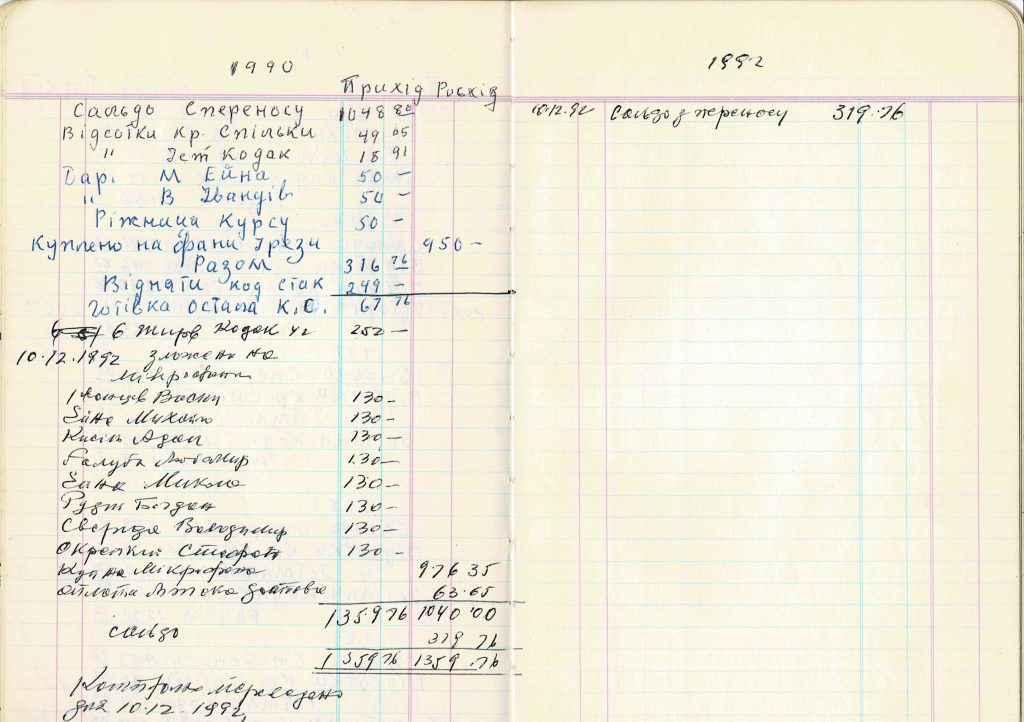 1990
Прихід Росхід
Сальдо спереносу 1048 80
Відсотки кр. Спільки 49 05
" Іст Кодак 18 91
Дар. М Ейна 50 –
" В Іванців 50 –
Ріжниця Курсу 50 –
Куплено на фани Ґрези 950 –
Разом 316 76
Відняти код стак 249 –
Готівка остала К.С. 67 76
6 Кодак 252 –
10.12.1992 зложени на
мікрофони
130 –
Ейна Михайло 130 –
Кисіль Адам 130 –
Галуба Любомир 130 –
Ейна Микола 130 –
Рудик Богдан 130 –
Володимир 130 –
Окрепкий Стефан 130 –
Мікрофона 976 35
оплата 63.65
1359 76 1040 00
сальдо 319 76
1359 76 1359.76
Контролю переведено
дня 10.12.1992
1992
10.12.92 Сальдо з переносу 319.76